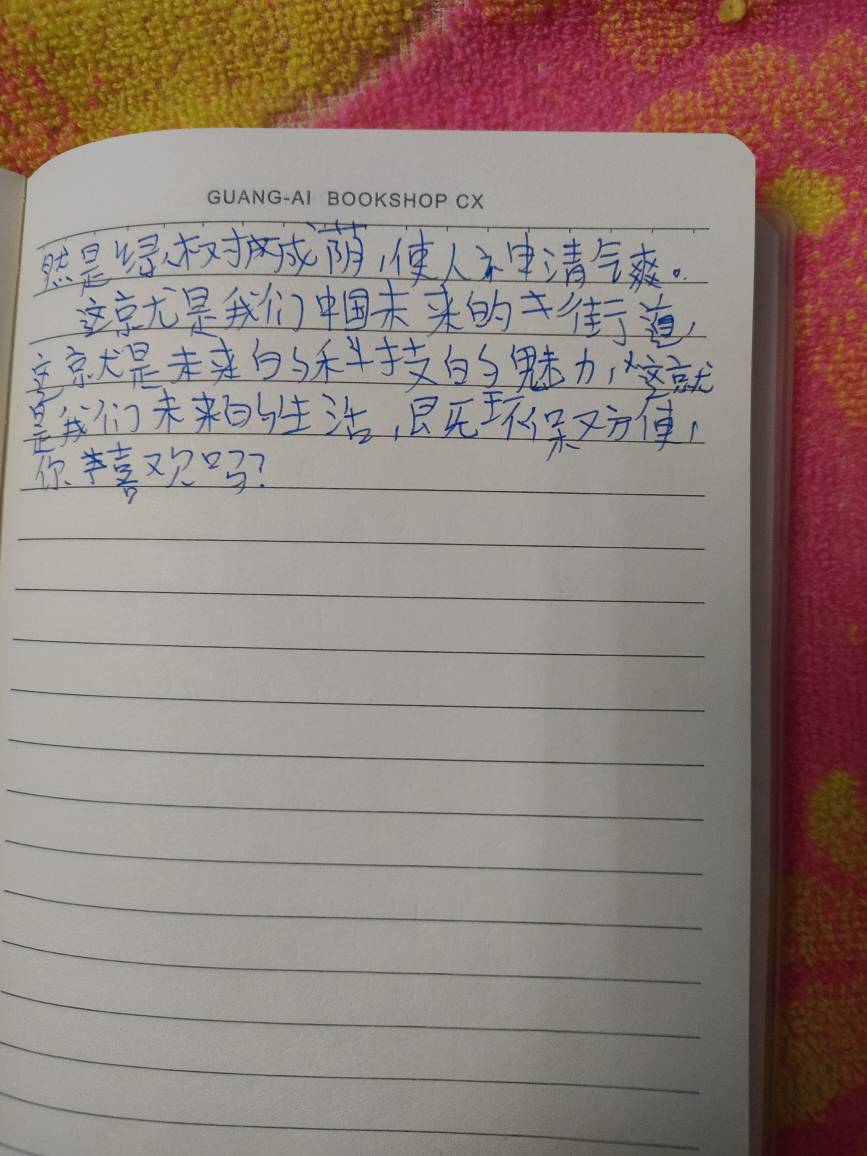 GUANG-AI BOOKSHOP CX
然是绿树成荫,使人神清气爽。
这就是我们中国未来的街道,
这就是未来的科技的魅力,这就
是我们未来的生活,既环保又方便,
你喜欢吗?